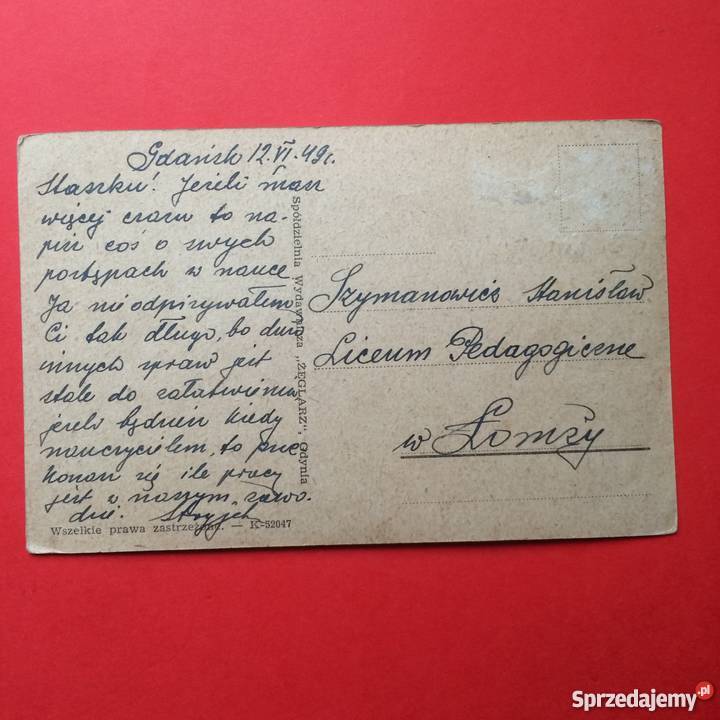 Gdańsk 12.VI.49r.
Staszku! Jeżeli masz
więcej czasu to na-
pisz coś o swych
postępach w nauce
Ja nie odpisywałem
Ci tak długo, bo dużo
innych spraw jest
stale do załatwienia
jeżeli będziesz kiedy
nauczycielem, to prze
konasz się ile pracy
jest w naszym zawo-
dzie. Stryjek
Wszelkie prawa zastrzeżone. — K-52047
Spółdzielnia Wydawnicza „ŻEGLARZ", Gdynia
Szymanowicz Stanisław
Liceum Pedagogiczne
w Łomży
Sprzedajemy.pl